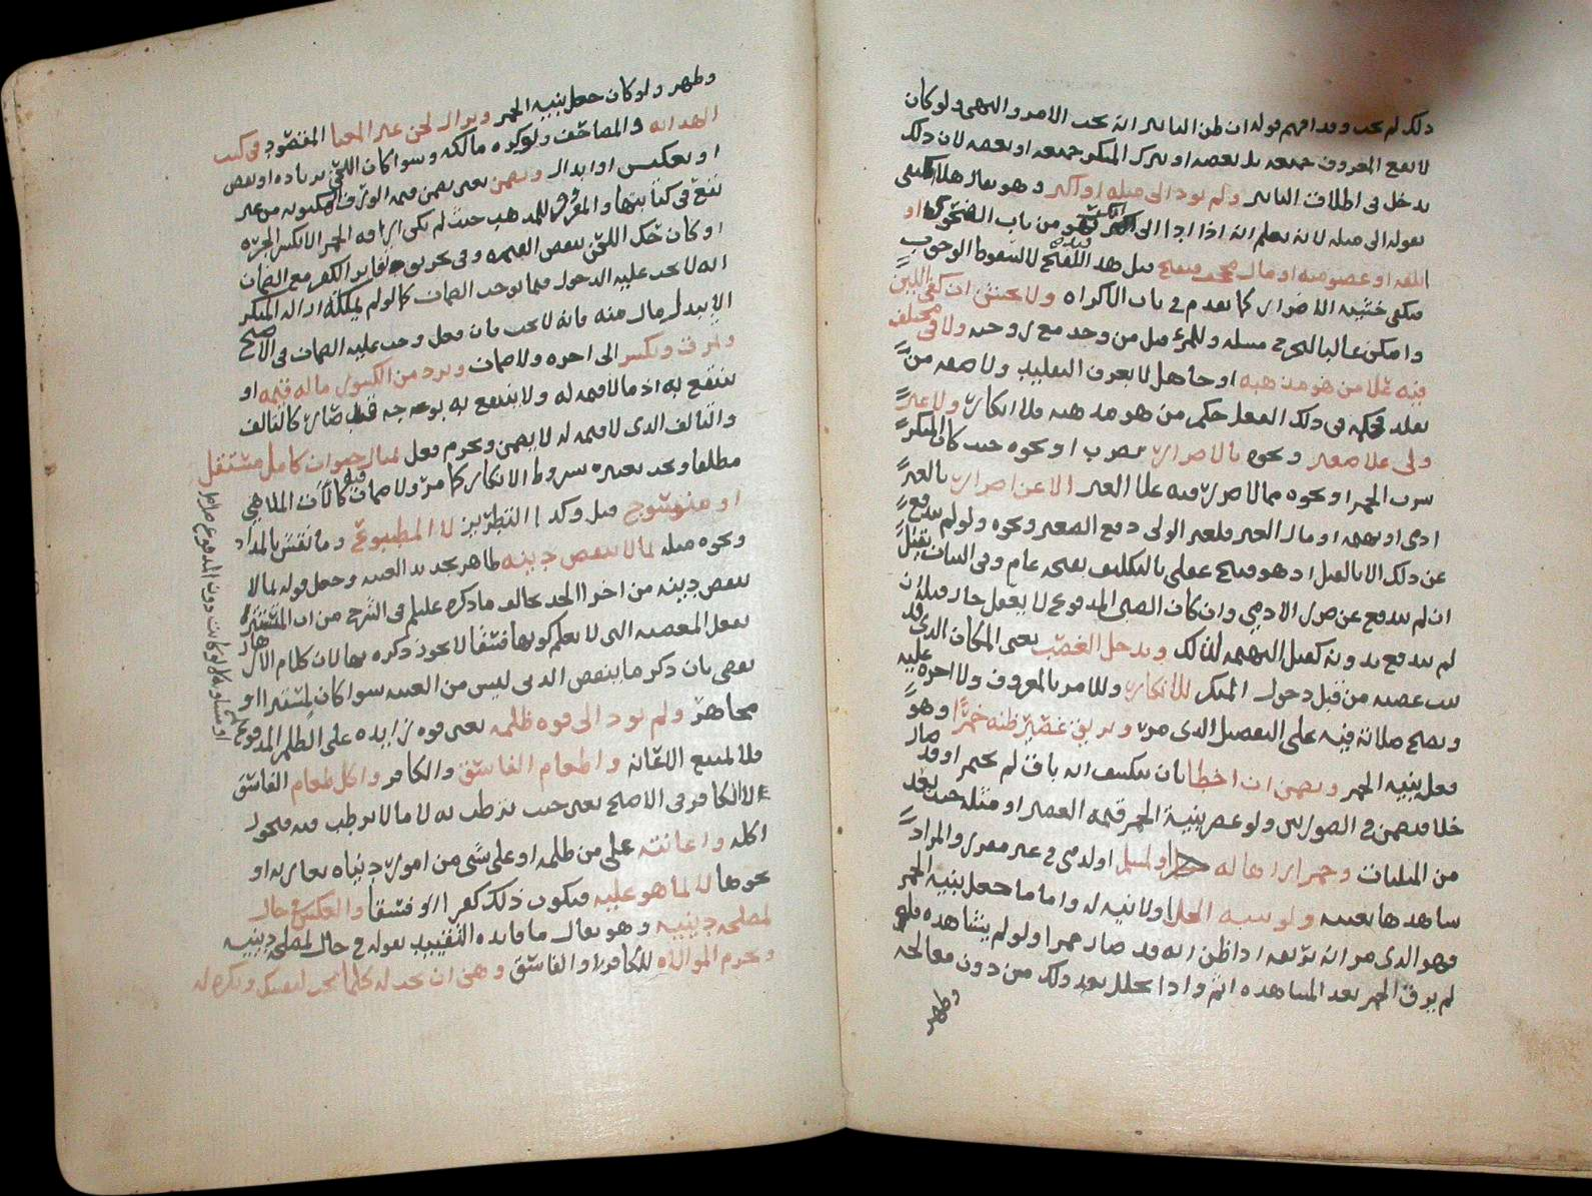 ذلك لم يجب وقد افهم قوله ان ظن التاثير انه يجب الامر والنهي ولو كان
لا يقع المعروف جميعه بل بعضه او يترك المنكر جميعه او بعضه لان ذلك
يدخل في اطلاق التاثير ولم يود الى مثله او انكر وهو يقال هلا اكتفى
بقوله الى مثله لانه يعلم انه اذا ادا الى انكر فهو من باب الفحوى او
تلفه او عضو منه او مال مجحف فيقبح قيل هذا القبح لا لسقوط الوجوب
فيكفي خشية الاضرار كما تقدم في باب الاكراه ولا يخشن ان كفى اللين
وامكن غالبا التحرج مسله وللمرء قتل من وجد مع زوجته ولا في مختلف
فيه على من هو مذهبه او جاهل لا يعرف التقليد ولا صفة من
يقلد فحكمه في ذلك الفعل حكم من هو مذهبه فلا انكار ولا غير
ولي على صغير ونحوه بالاضرار بضرب او نحوه حيث كان المنكر
شرب الخمر او نحوه مما لا ضرر فيه على الغير الا عن اضرار بالغير
ادمي او بهيمه او مال الغير فلغير الولي دفع الصغير ونحوه ولو لم يندفع
عن ذلك الا بالقتل اذ هو قبيح عقلي بالتكليف بمنعه عام وفي البيان يقتل
ان لم يندفع عن صول الادمي وان كان الصبي المدفوع لا يعقل جاز قتله ان
لم يندفع بدونه كقتل البهيمه لذلك ويدخل الغصب يعني المكان الذي قد
ثبت غصبه من قبل دخول المنكر للانكار وللامر بالمعروف ولا اجره عليه
وتصح صلاته فيه على التفصيل الذي مر ويريق عصير ظنه خمرا وهو
فعل بنيه الخمر ويضمن ان اخطا بان ينكشف انه باق لم يخمر او قد صار
خلا فيضمن في الصورتين ولو عصر بنية الخمر قيمه العصير او مثله حيث يعد
من المثليات وخمرا راها له او لمسلم او لذمي في غير مقره والمراد
شاهدها بعينه ولو بنيه الخل اولا نيه له واما ما جعل بنيه الخمر
فهو الذي مر انه يريقه اذا ظن انه قد صار خمرا ولو لم يشاهده فلو
لم يرق الخمر بعد المشاهده اثم واذا تخلل بعد ذلك من دون معالجه
وطهر
وطهر ولو كان جعل بنيه الخمر ويزال لحن غير المعنا المقصود في كتب
الهدايه والمصاحف ولو كره مالكه وسوا كان اللحن بزياده او نقص
او تعكيس او ابدال ويضمن يعني يضمن قيمه الورق المكتوبه من غير
نفع في كتابتها والمقرر للمذهب حيث لم يكن اراقه الخمر الا بكسر الجره
او كان حك اللحن ينقص القيمه وفي تحريق دفاتر الكفر مع الضمان
انه لا يجب عليه الدخول فيما يوجب الضمان كما لو لم يمكنه ازاله المنكر
الا ببذل مال منه فانه لا يجب فان فعل وجب عليه الضمان في الاصح
ويحرق ويكسر الى اخره ولا ضمان ويرد من الكسور ما له قيمه او
ينتفع به اذ ما لا قيمه له ولا ينتفع به بوجه قط صار كالتالف
والتالف الذي لا قيمه له لا يضمن ويحرم فعل تمثال حيوان كامل مستقل
مطلقا ويجب تغييره بشروط الانكار كما مر ولا ضمان فيه كآلات الملاهي
او منسوج قيل وكذا التطريز لا المطبوع وما نقش بالمداد
ونحوه مثله لما لا ينقص دينه ظاهر تحديد الغيبه وجعل قوله بما لا
ينقص دينه من اخر الحد يخالف ما ذكره عليلم في الشرح من ان المستتره
بفعل المعصيه التي لا يعلم كونها فسقا لا يجوز ذكره بها لان كلام الازهار
يقضي بان ذكر ما ينقص الدين ليس من الغيبه سوا كان مستترا او
مجاهر ولم يود الى قوه ظلمه يعني قوه زايده على الظلم المدفوع
فلا لمنع الاعانه واطعام الفاسق والكافر واكل طعام الفاسق
لا الكافر في الاصح يعني حيث ترطب به لا ما لا يرطب فيه فيجوز
اكله واعانته على من ظلمه او على شي من امور دنياه بعاريه او
نحوها لا لما هو عليه فيكون ذلك كفرا او فسقا والعكس في حال
لمصلحه دينيه وهو يقال ما فايده التقييد بقوله في حال لمصلحه دينيه
وتحرم الموالاه للكافر والفاسق وهي ان تحب له كلما تحب لنفسك وتكره له
او مساويه كما لو كانت دون المدفوع صار